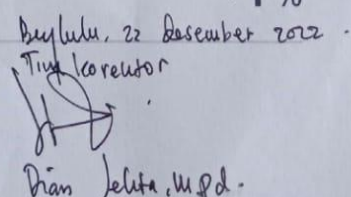 Bengkulu, 22 Desember 2022.
Tim korektor
Dian Jelita, M.Pd.